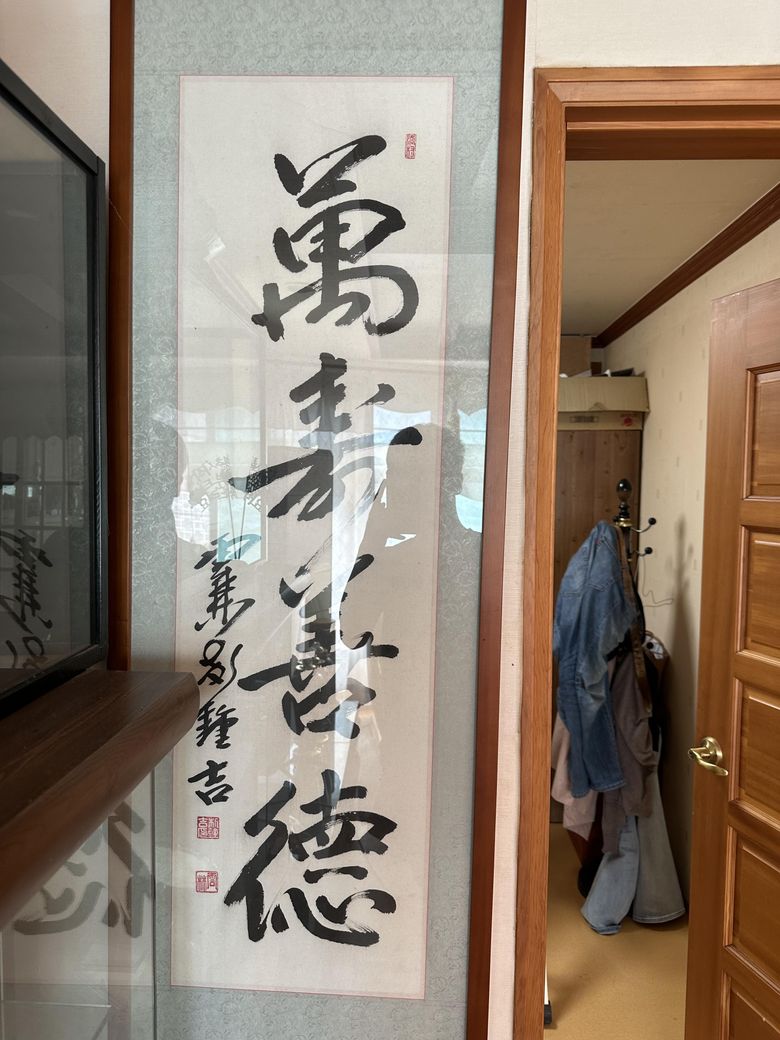 萬壽善德
鍾吉